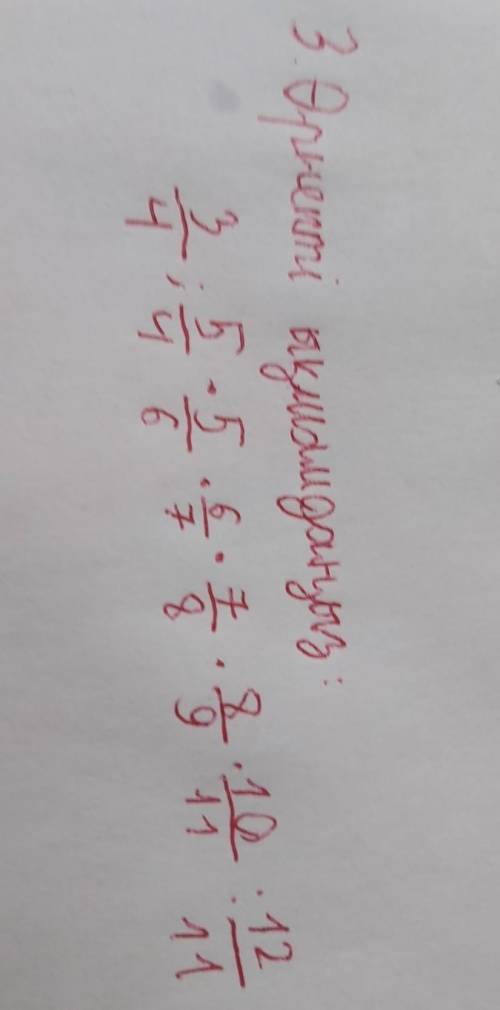 3. Өрнекті ықшамдаңыз:
3/4 : 5/4 · 5/6 · 6/7 · 7/8 · 8/9 · 10/11 : 12/11